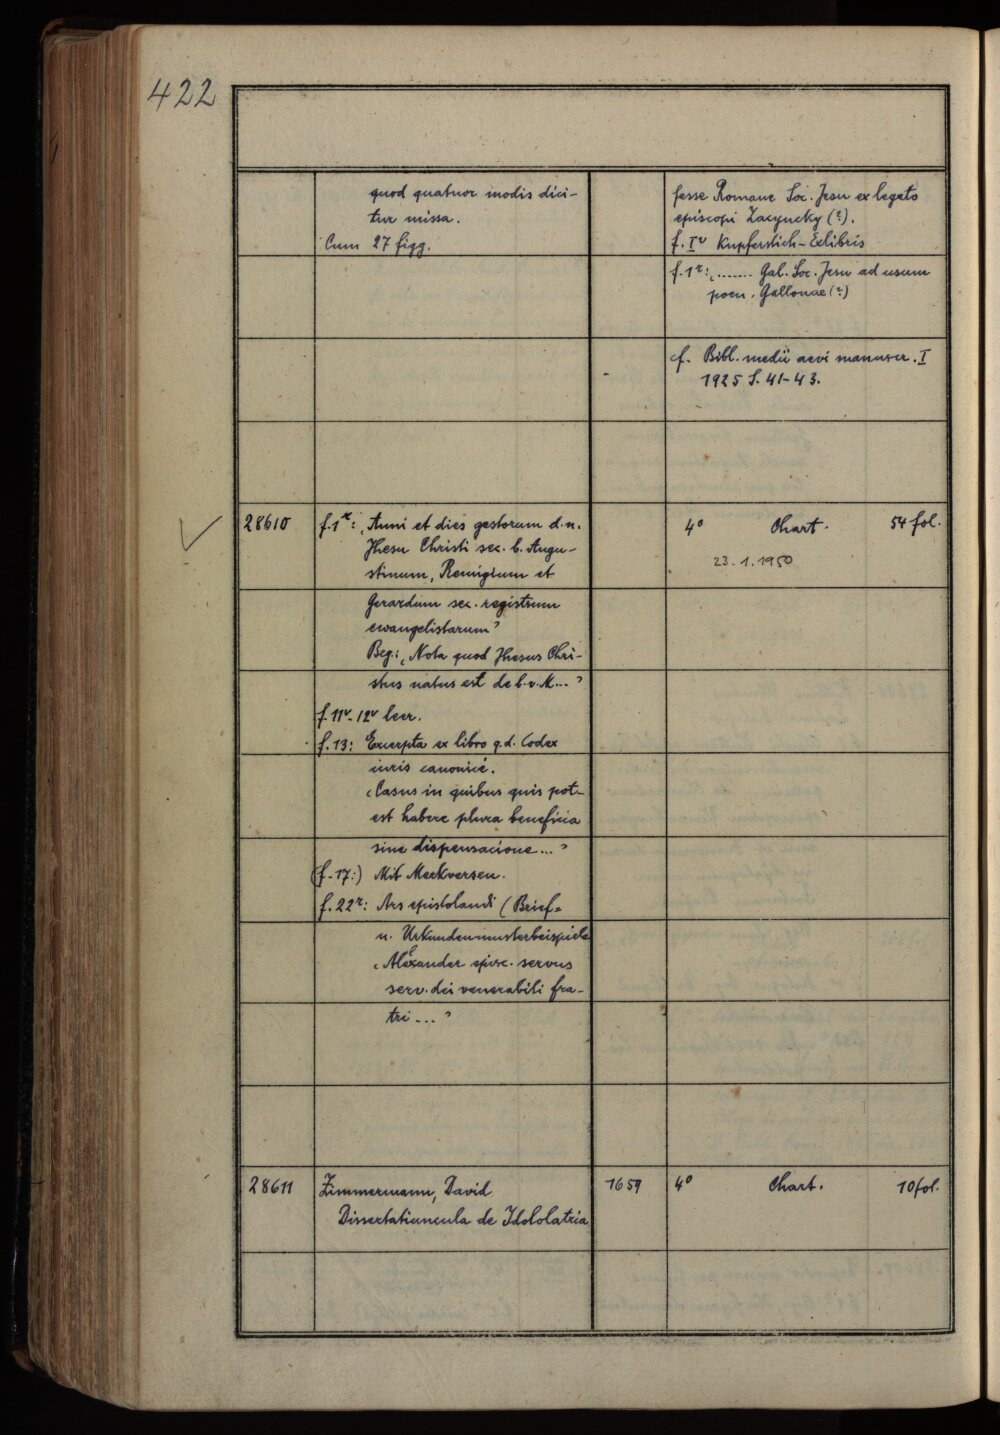 422
quod quatuor modis dici-
tur missa.
Cum 27 figg.
fesse Romane Soc. Jesu ex legato
episcopi Zacyncky (?).
f. Iv Kupferstich-Exlibris
f.1r: ‚....... Gal. Soc. Jesu ad usum
poen. Gallonae (?)
cf. Bibl. medii aevi manuscr. I
1925 S. 41-43.
28610
f.1r: ‚Anni et dies gestorum d.n.
Jhesu Christi sec. b. Augu-
stinum, Remigium et
Gerardum sec. registrum
ewangelistarum’
Beg.: ‚Nota quod Jhesus Chri-
stus natus est de b.v.M...’
f. 11v-12v leer.
f. 13: Excerpta ex libro q.d. Codex
iuris canonici.
‚Casus in quibus quis pot-
est habere plura beneficia
sine dispensacione...’
(f. 17:) Mit Merkversen.
f. 22r: Ars epistolandi (Brief-
u. Urkundenmusterbeispiele
‚Alexander episc. servus
serv. dei venerabili fra-
tri ...’
4° Chart. 54 fol.
23.1.1950
28611
Zimmermann, David
Dissertatiuncula de Idololatria
1659
4° Chart. 10 fol.